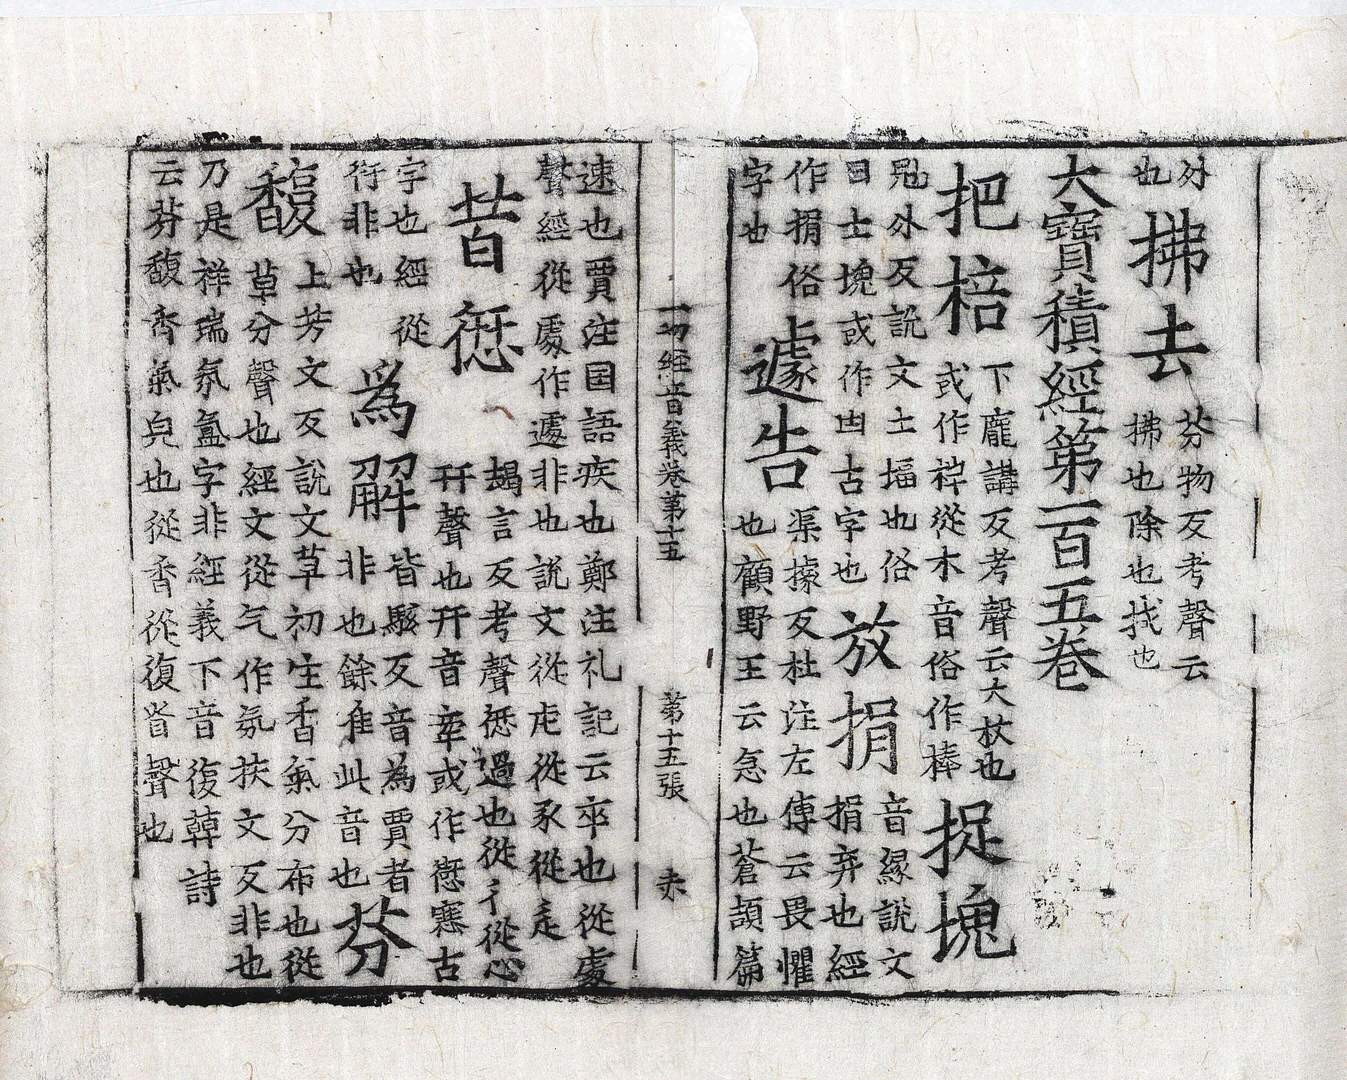 外也拂去芬物反考聲云拂也除也找也
大寶積經第一百五卷
把棓下龐講反考聲云大杖也或作從木音俗作棒捉塊
外反說文土塭也俗曰土塊或作凷古字也放捐音緣說文捐弃也經
作捐俗字也遽告渠據反杜注左傳云畏懼也顧野王云急也蒼頡篇
一切經音義卷第十五 第十五張
速也賈注国語疾也鄭注礼記云卒也從處聲經從處作遽非也說文從虍從豕從辵
昔愆朅言反考聲愆過也從彳從心幵聲也幵音牽或作寋古
字也經從衍非也為解皆駭反音為賈者非也餘准此音也芬
馥上芳文反說文草初生香氣分布也從草分聲也經文從气作氛扶文反非也
乃是祥瑞氛氳字非經義下音復韓詩云芬馥香氣皃也從香從復省聲也